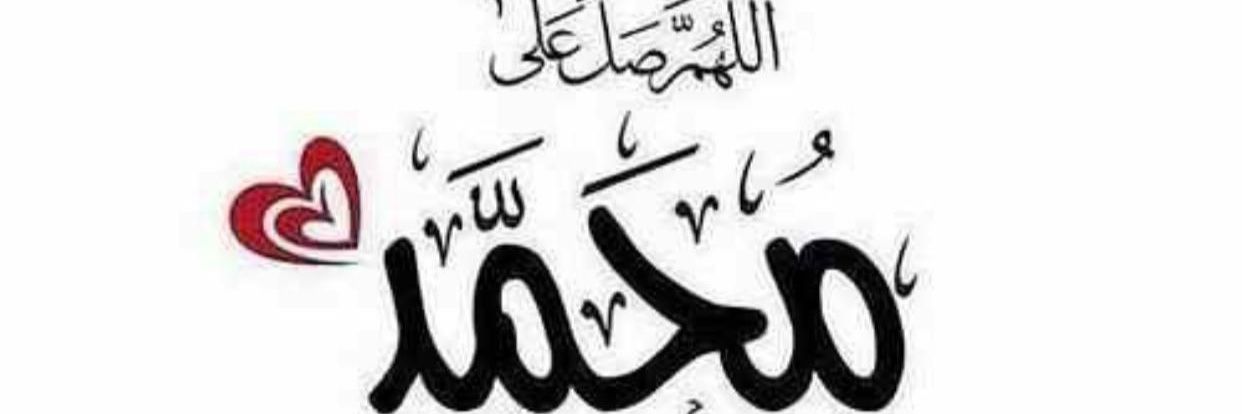 اللهُمَّ صَل عَلى
مُحَمَّد